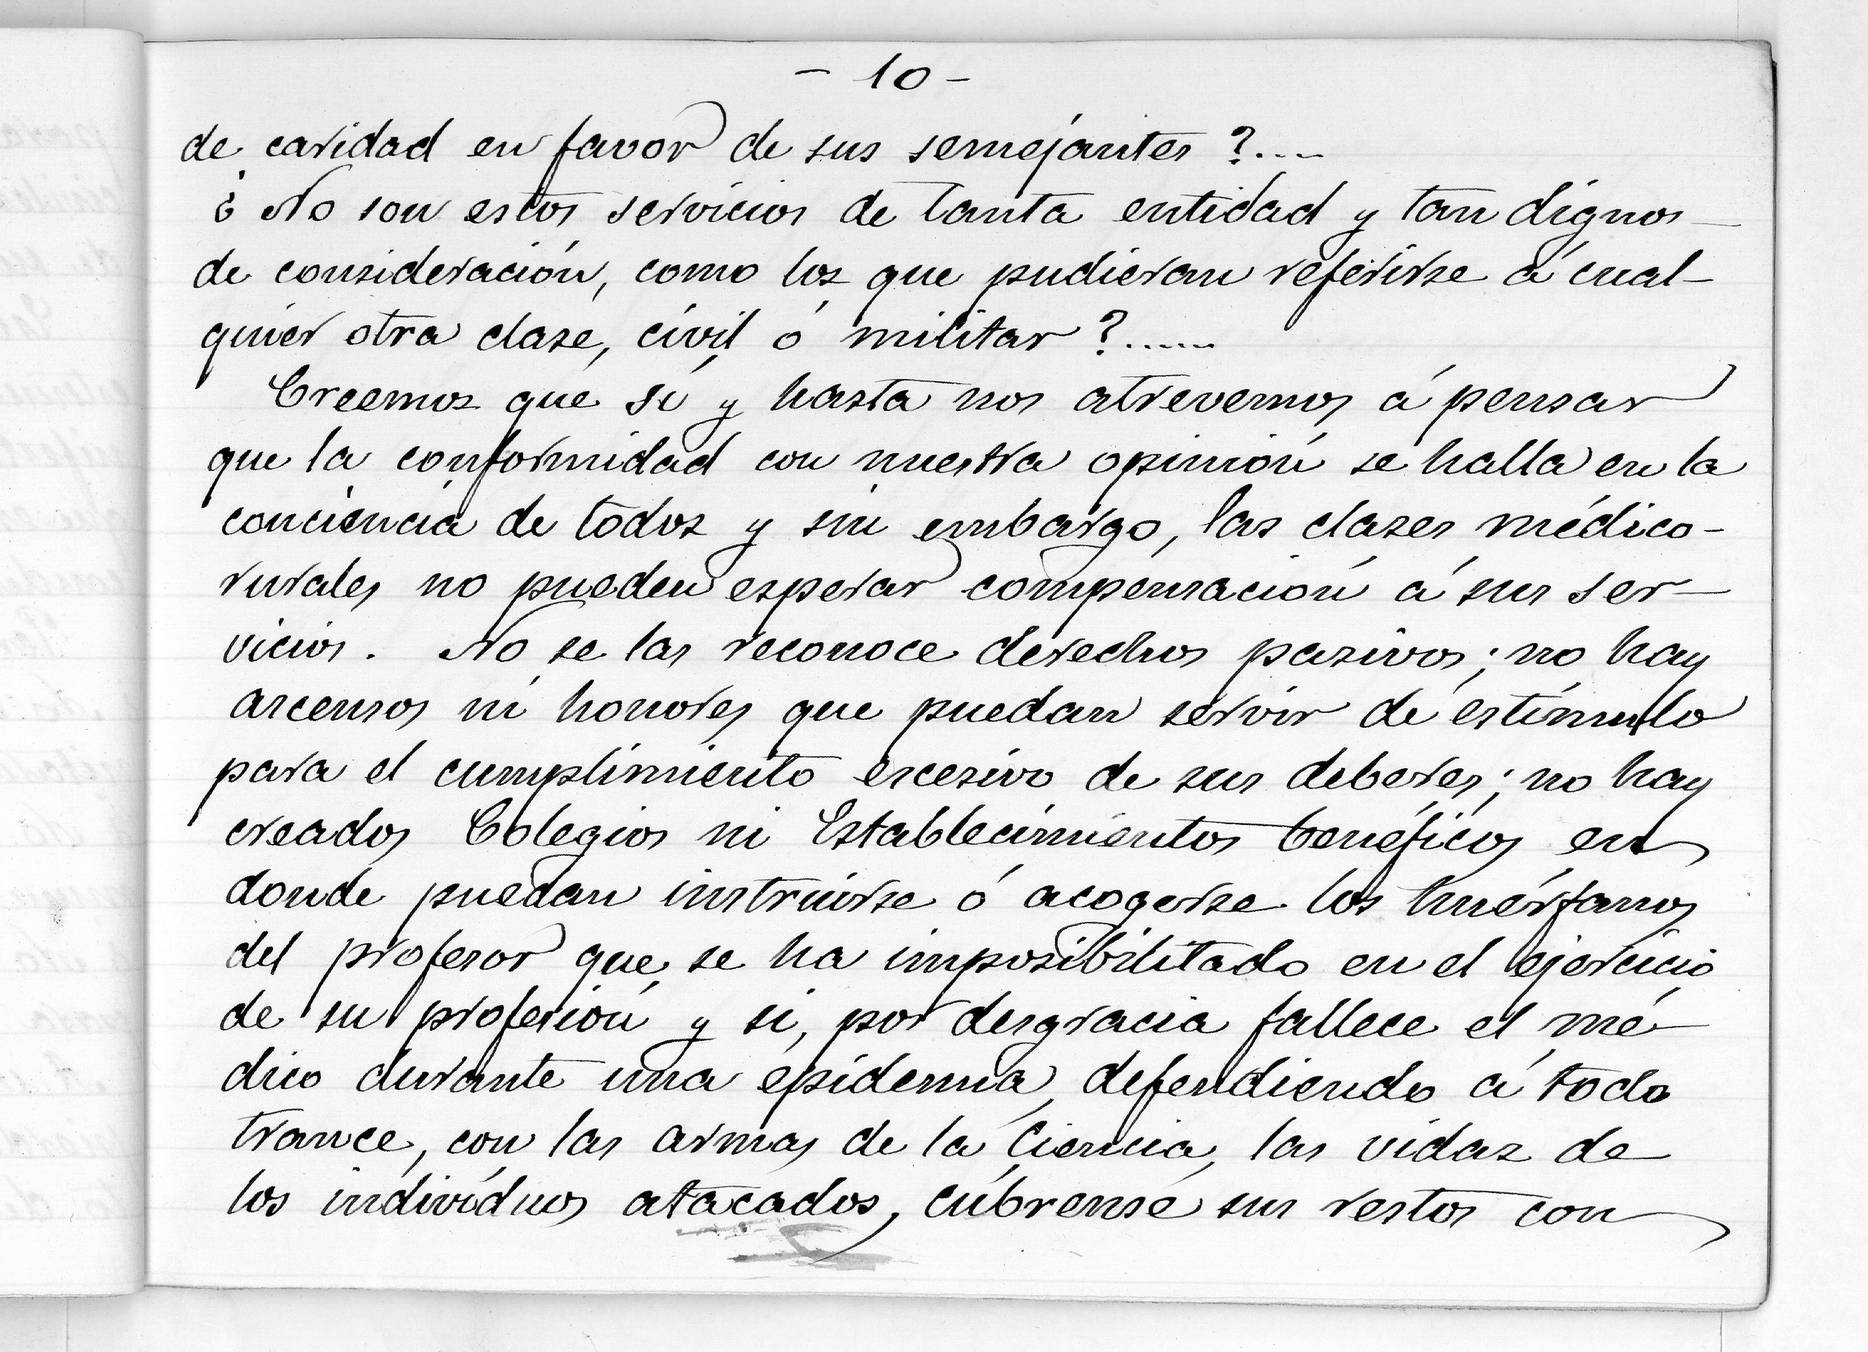 - 10 -
de caridad en favor de sus semejantes ?....
¿ No son estos servicios de tanta entidad y tan dignos
de consideración, como los que pudieran referirse á cual-
quier otra clase, civil ó militar ?......
Creemos que sí y hasta nos atrevemos á pensar
que la conformidad con nuestra opinión se halla en la
conciencia de todos y sin embargo, las clases médico-
rurales no pueden esperar compensación á sus ser-
vicios. No se las reconoce derechos pasivos; no hay
ascensos ni honores que puedan servir de estímulo
para el cumplimiento excesivo de sus deberes; no hay
creados Colegios ni Establecimientos benéficos en
donde puedan instruirse ó acogerse los huérfanos
del profesor que se ha imposibilitado en el ejercicio
de su profesión y si, por desgracia fallece el mé-
dico durante una epidemia, defendiendo á todo
trance, con las armas de la Ciencia, las vidas de
los individuos atacados, cúbrense sus restos con